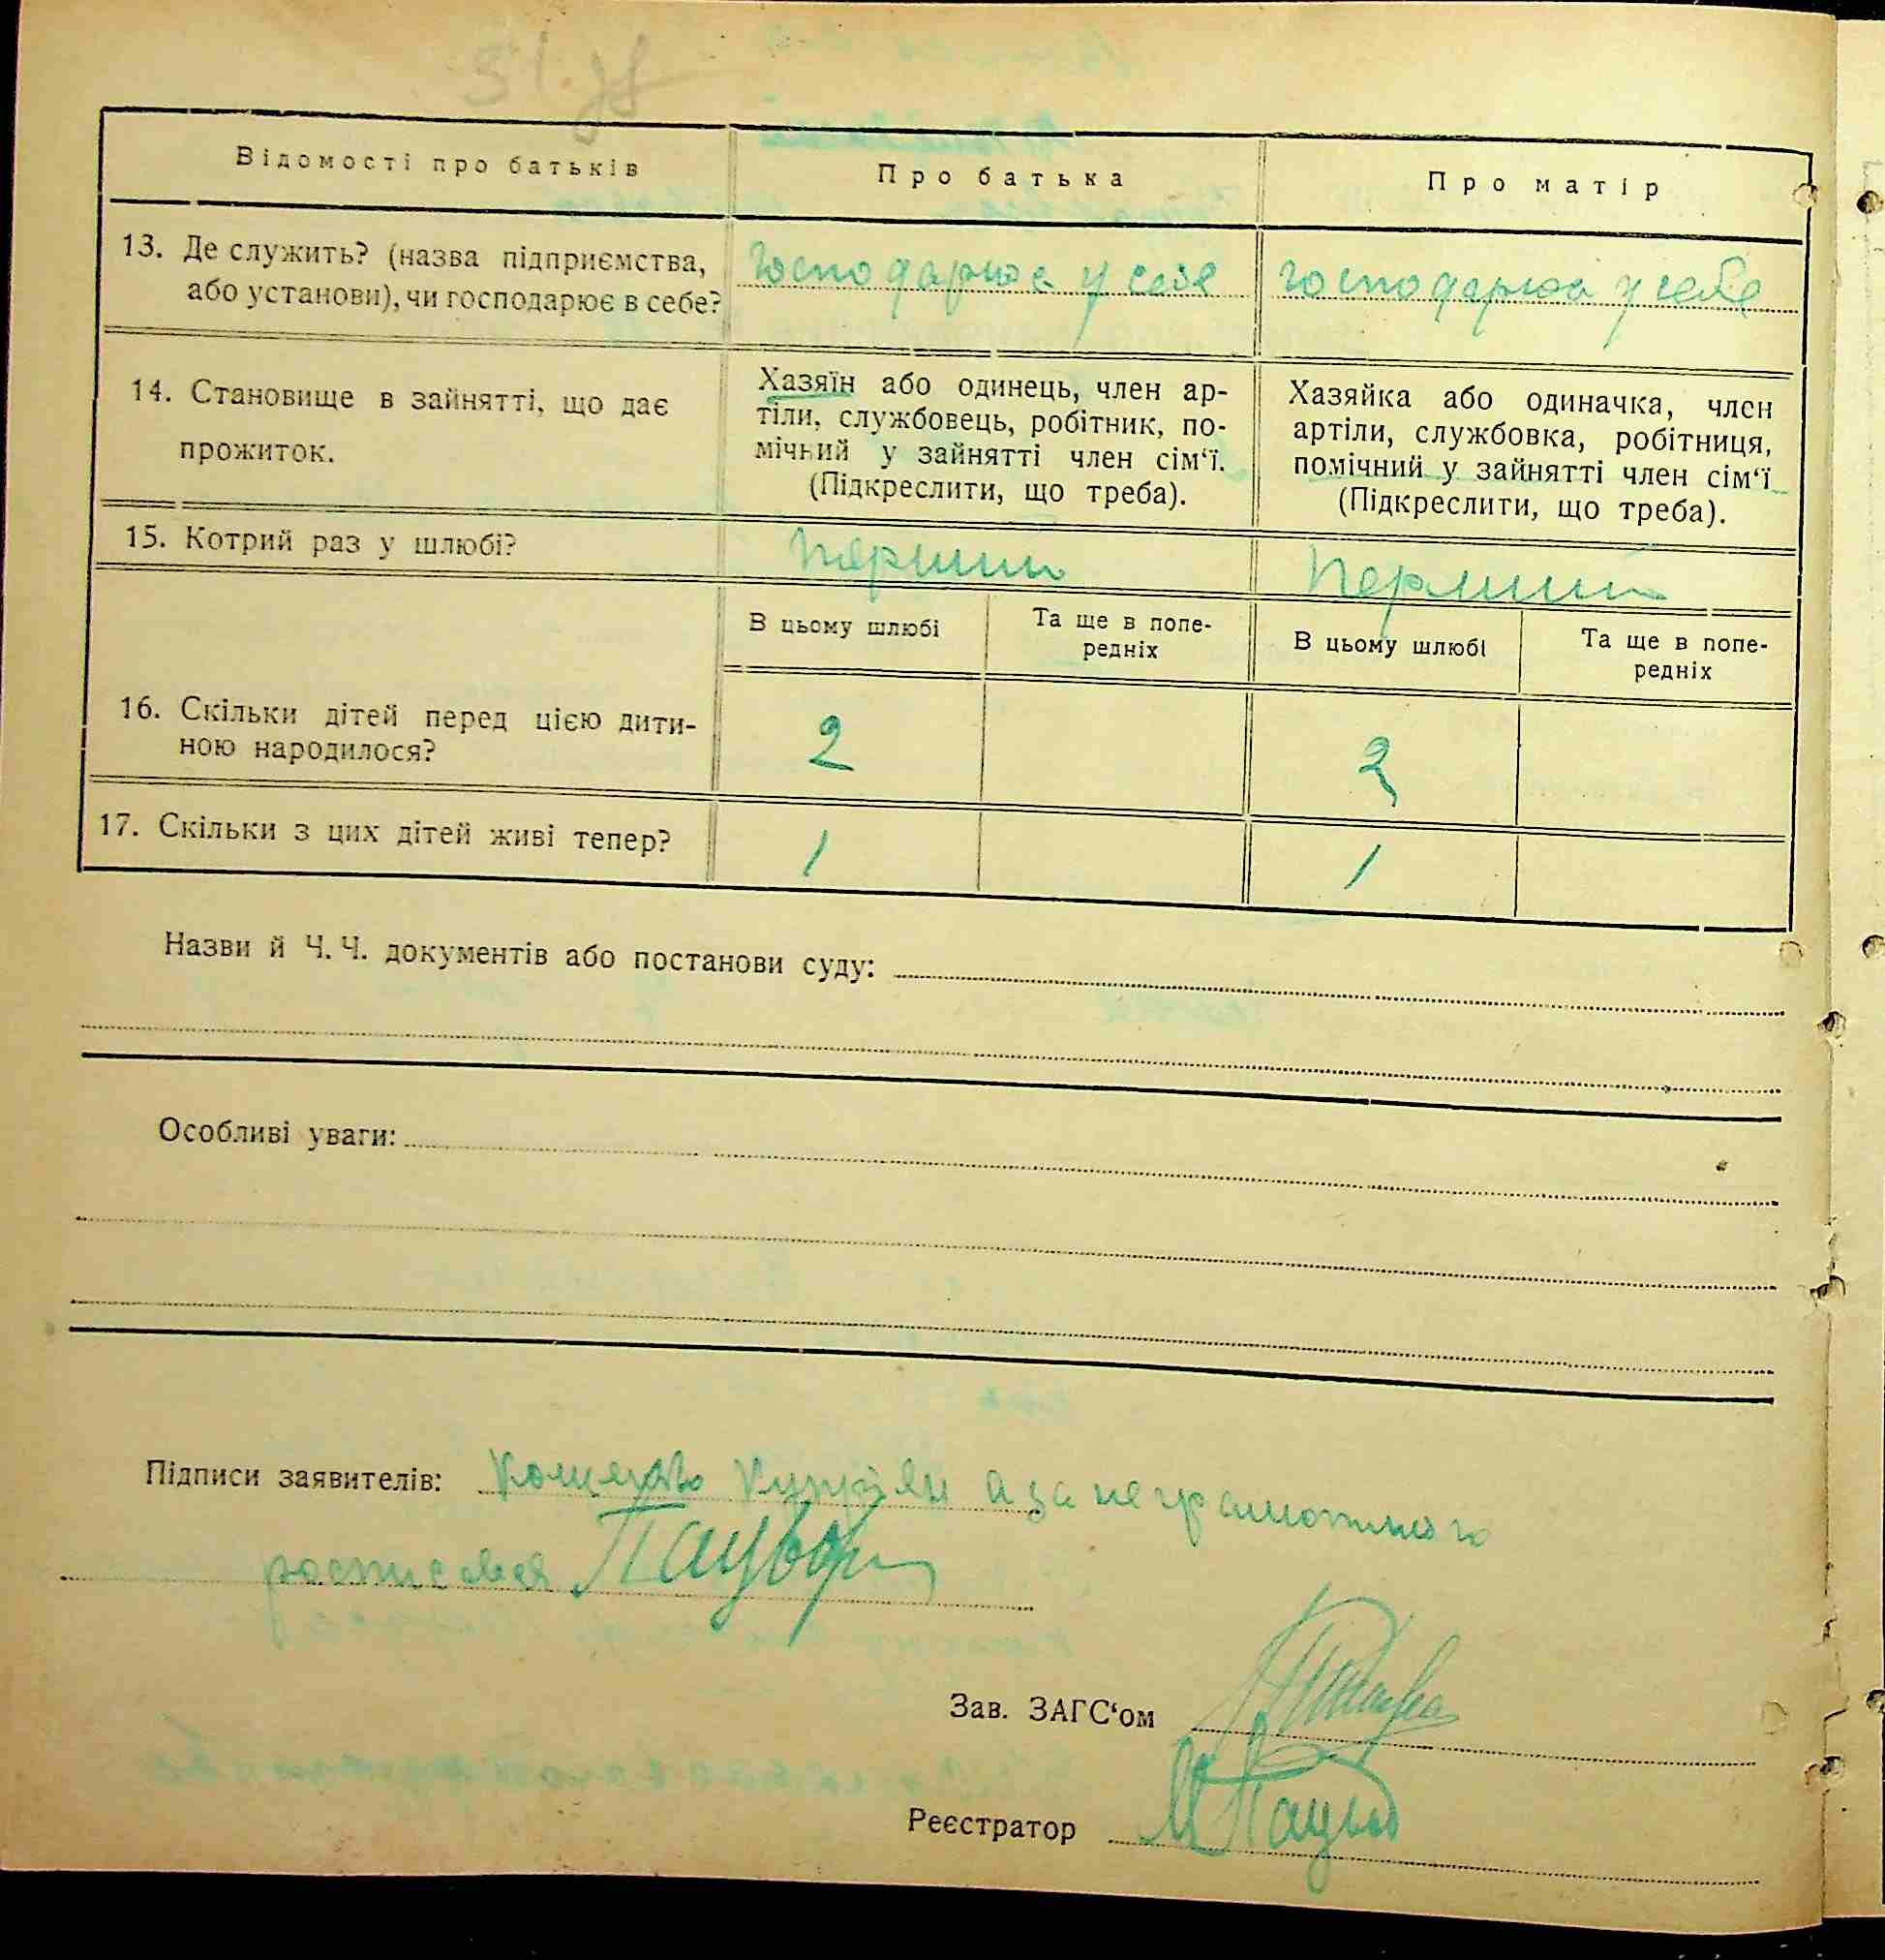 Відомості про батьків
Про батька
Про матір
13. Де служить? (назва підприємства,
або установи), чи господарює в себе?
господарює у себе
господарює у себе
14. Становище в зайнятті, що дає
прожиток.
Хазяїн або одинець, член ар-
тіли, службовець, робітник, по-
мічний у зайнятті член сім‘ї.
(Підкреслити, що треба).
Хазяйка або одиначка, член
артіли, службовка, робітниця,
помічний у зайнятті член сім‘ї
(Підкреслити, що треба).
15. Котрий раз у шлюбі?
перший
перший
В цьому шлюбі
Та ще в попе-
редніх
В цьому шлюбі
Та ще в попе-
редніх
16. Скільки дітей перед цією дити-
ною народилося?
2
2
17. Скільки з цих дітей живі тепер?
1
1
Назви й Ч. Ч. документів або постанови суду:
Особливі уваги:
Підписи заявителів: а за неграмотного
росписався
Зав. ЗАГС‘ом
Реєстратор